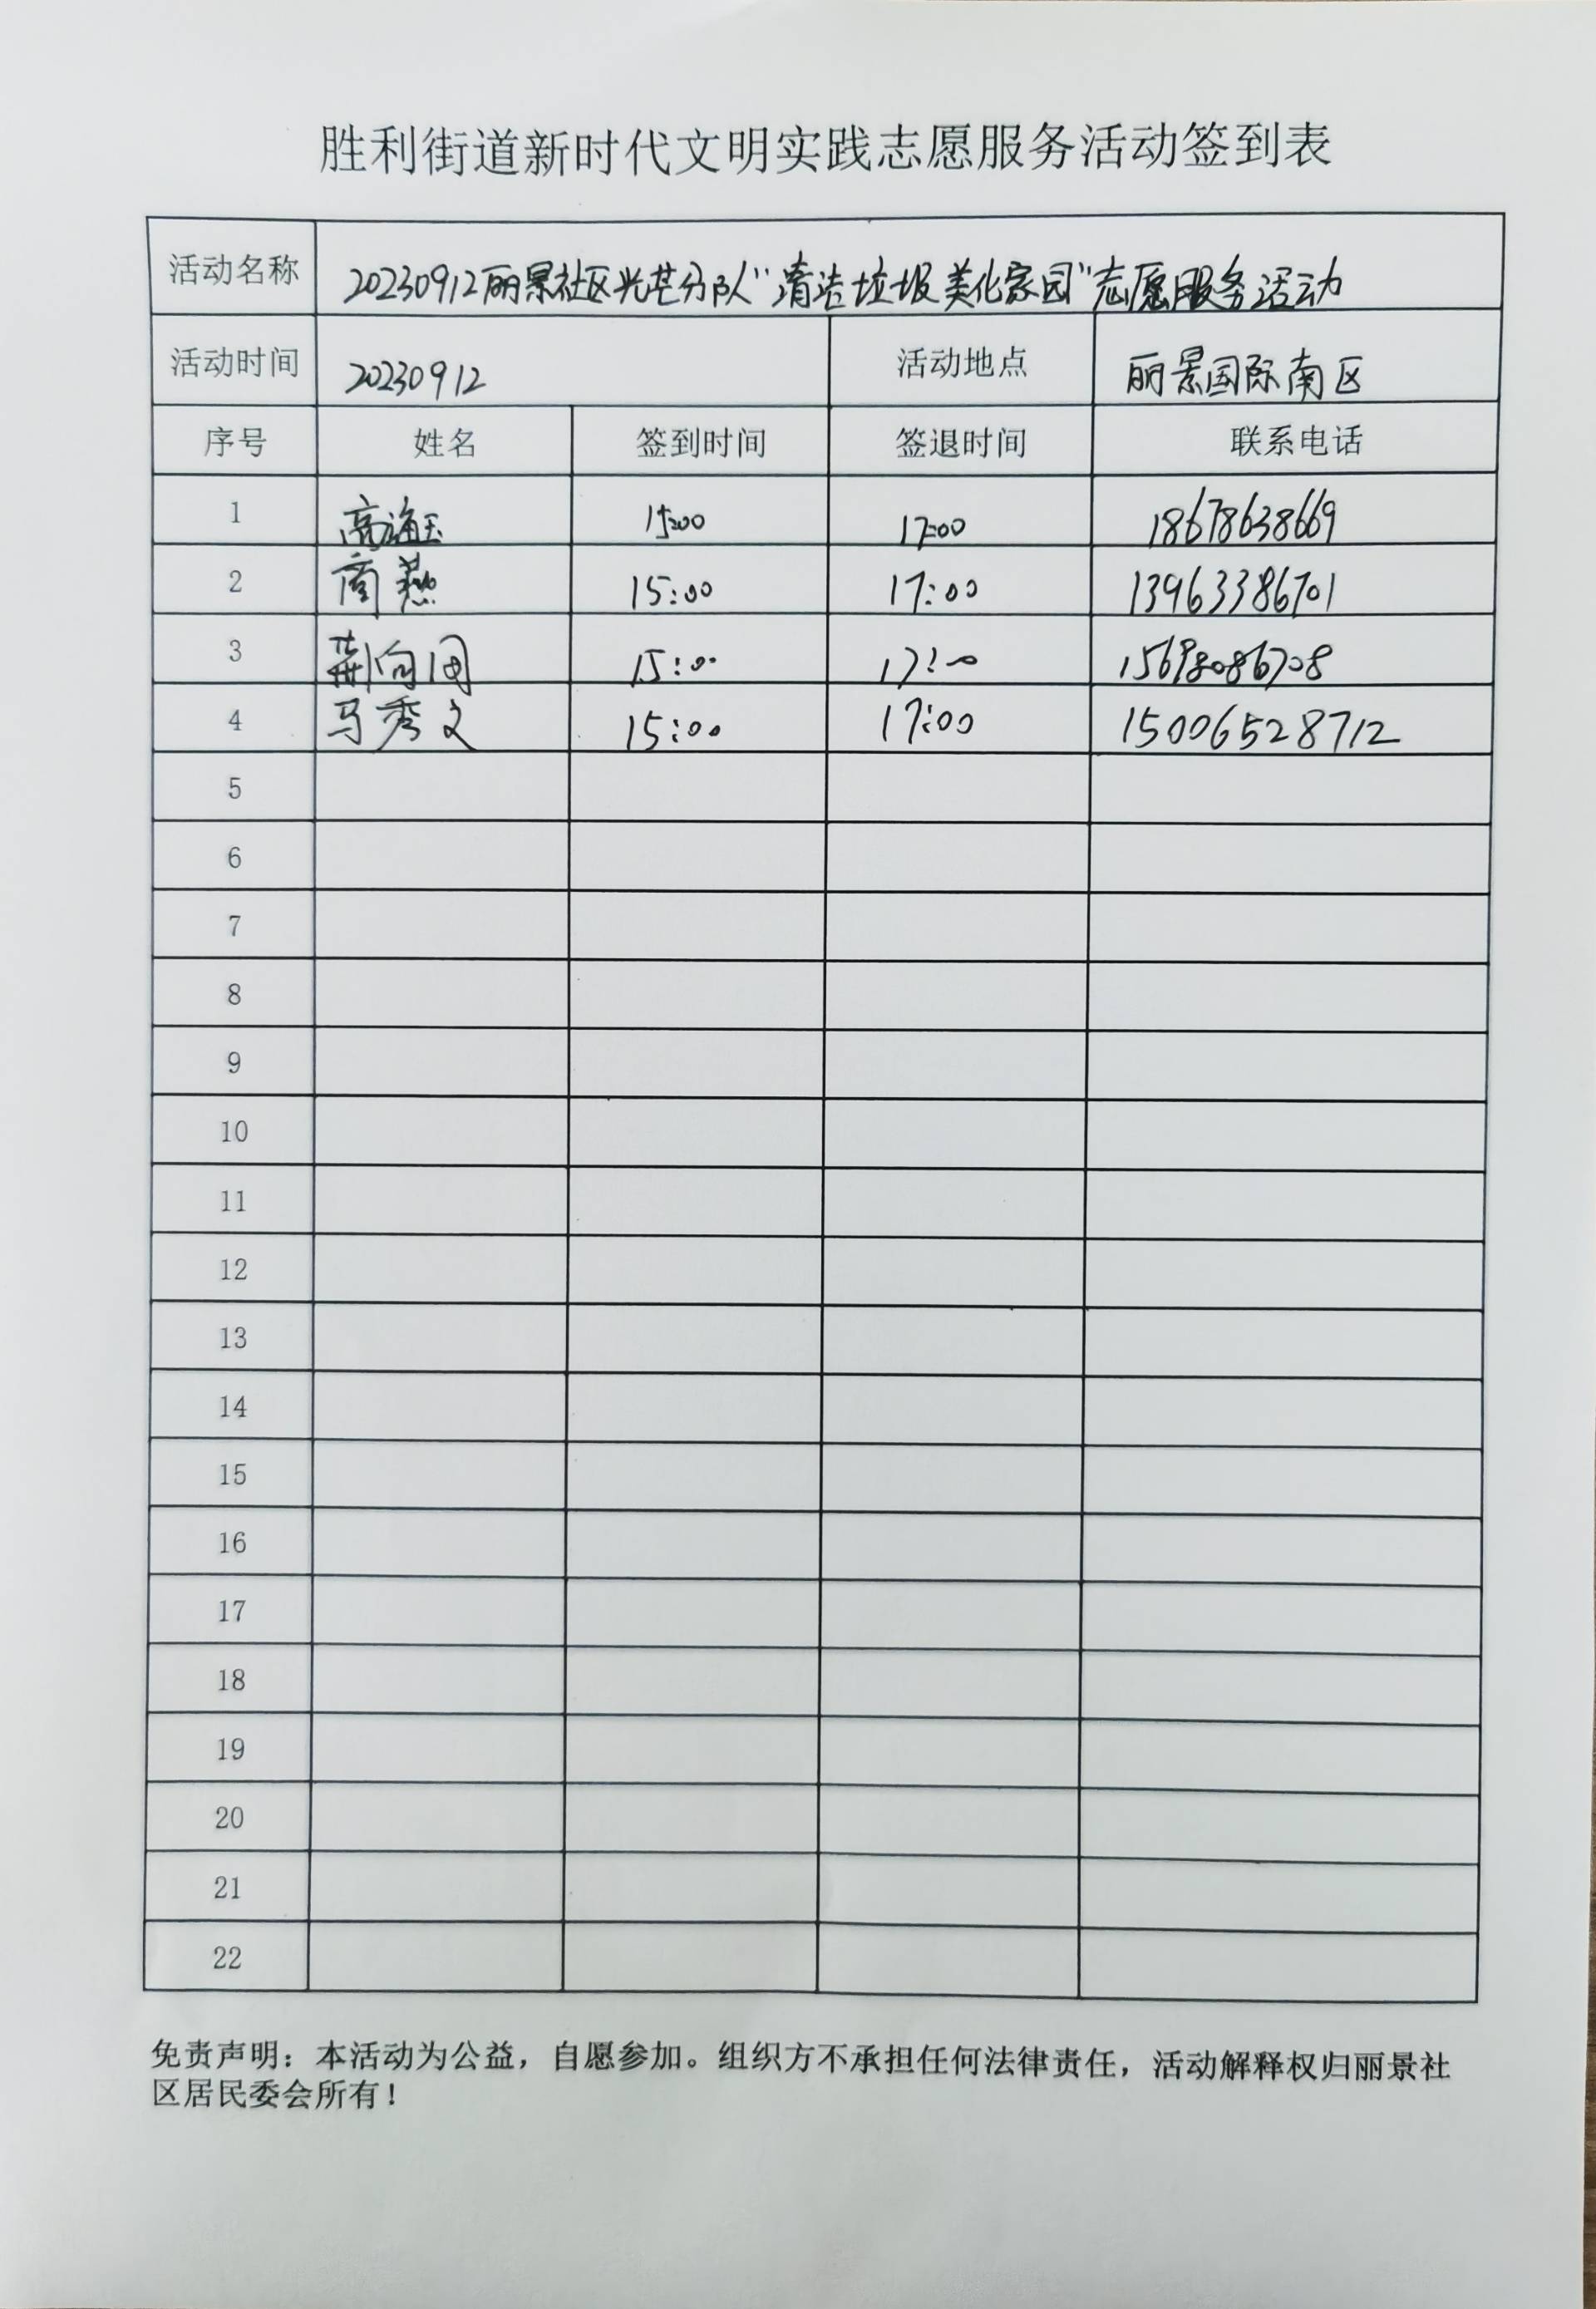 胜利街道新时代文明实践志愿服务活动签到表
活动名称 20230912丽景社区光芒分队“清洁垃圾美化家园”志愿服务活动
活动时间 20230912 活动地点 丽景国际南区
序号 姓名 签到时间 签退时间 联系电话
1 高海玉 15:00 17:00 18678638669
2 商燕 15:00 17:00 13963386701
3 荆向 15:00 17:00
4 马秀文 15:00 17:00 15006528712
5
6
7
8
9
10
11
12
13
14
15
16
17
18
19
20
21
22
免责声明：本活动为公益，自愿参加。组织方不承担任何法律责任，活动解释权归丽景社
区居民委会所有！